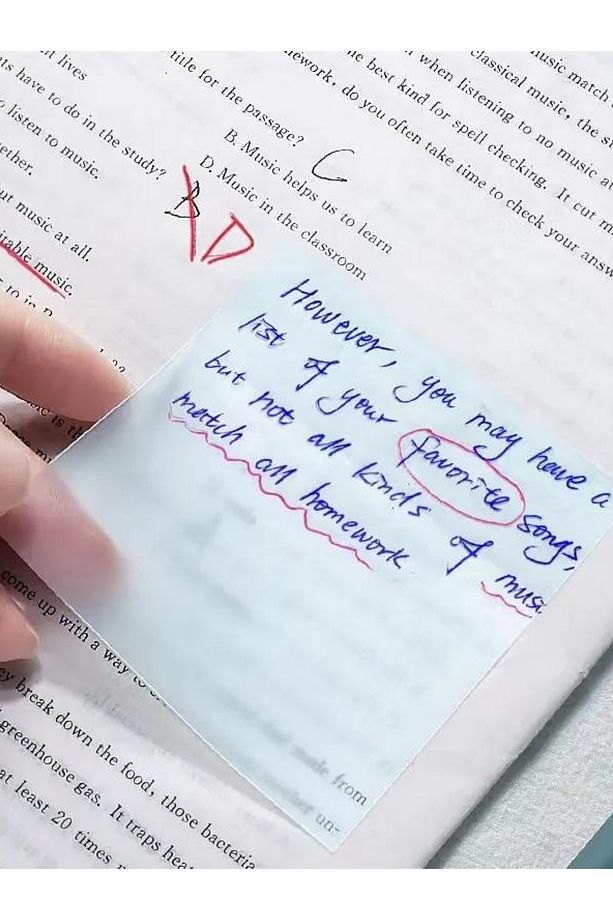 music match
classical music, the
when listening to no music
best kind for spell checking. It cut
do you often take time to check your
title for the passage?
B. Music helps us to learn
D. Music in the classroom
C
B D
lives
have to do in the study?
listen to music.
music at all.
music.
However, you may have a
list of your favorite songs,
but not all kinds of musi
match all homework
made from
un-
come up with a way to
break down the food, those bacteria
greenhouse gas. It traps heat
at least 20 times